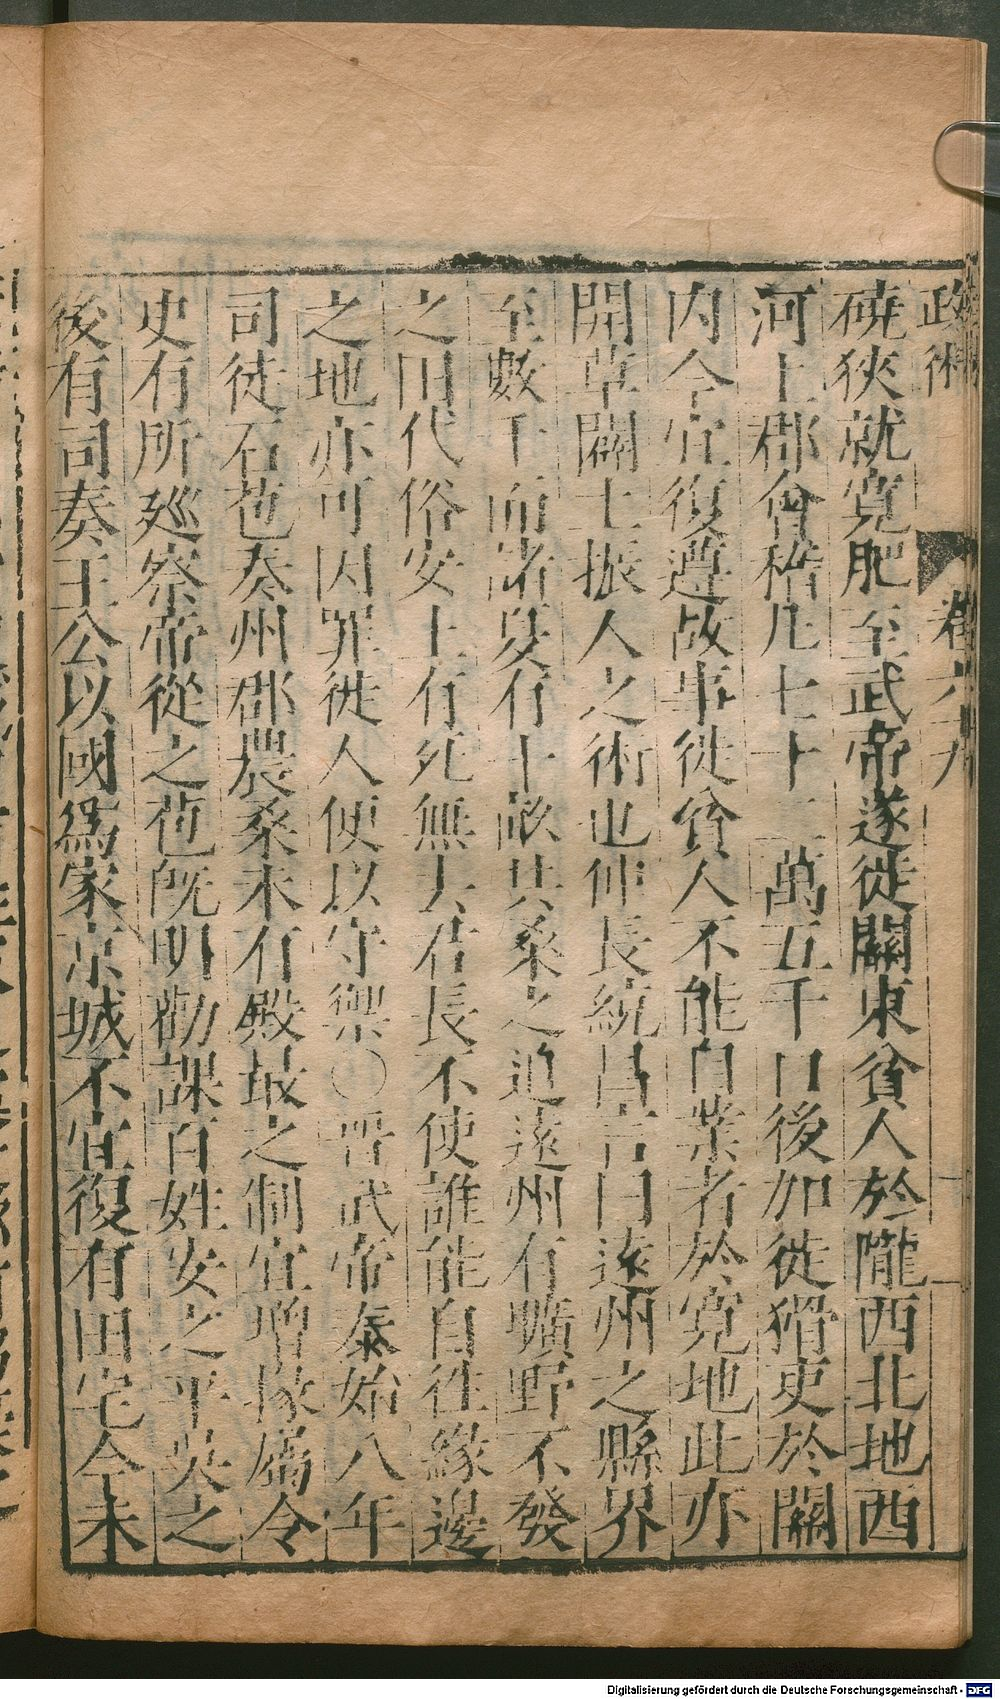 政術
卷六十九
磽狹就寬肥至武帝遂徙關東貧人於隴西北地西
河上郡會稽凡七十二萬五千口後加徙猾吏於關
內今宜復遵故事徙貧人不能自業者於寬地此亦
開草闢土振人之術也仲長統昌言曰遠州之縣界
至數千而諸夏有十畝共桑之迫遠州有曠野不發
之田代俗安土有死無去君長不使誰能自往緣邊
之地亦可因罪徙人便以守禦〇晉武帝泰始八年
司徒石苞奏州郡農桑未有殿最之制宜增掾屬令
史有所廵察帝從之苞旣明勸課百姓安之平吳之
後有司奏王公以國爲家京城不宜復有田宅今未
Digitalisierung gefördert durch die Deutsche Forschungsgemeinschaft - DFG